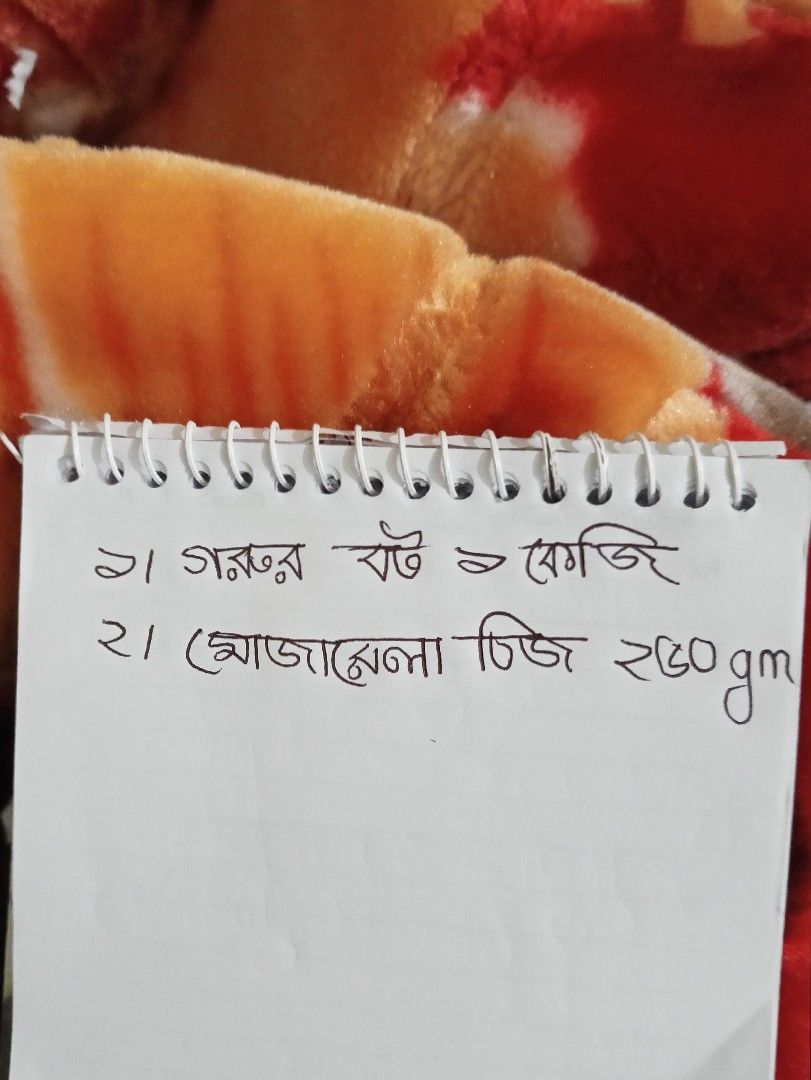 ১। গরুর বট ১ কেজি
২। মোজারেলা চিজ ২৫০ gm